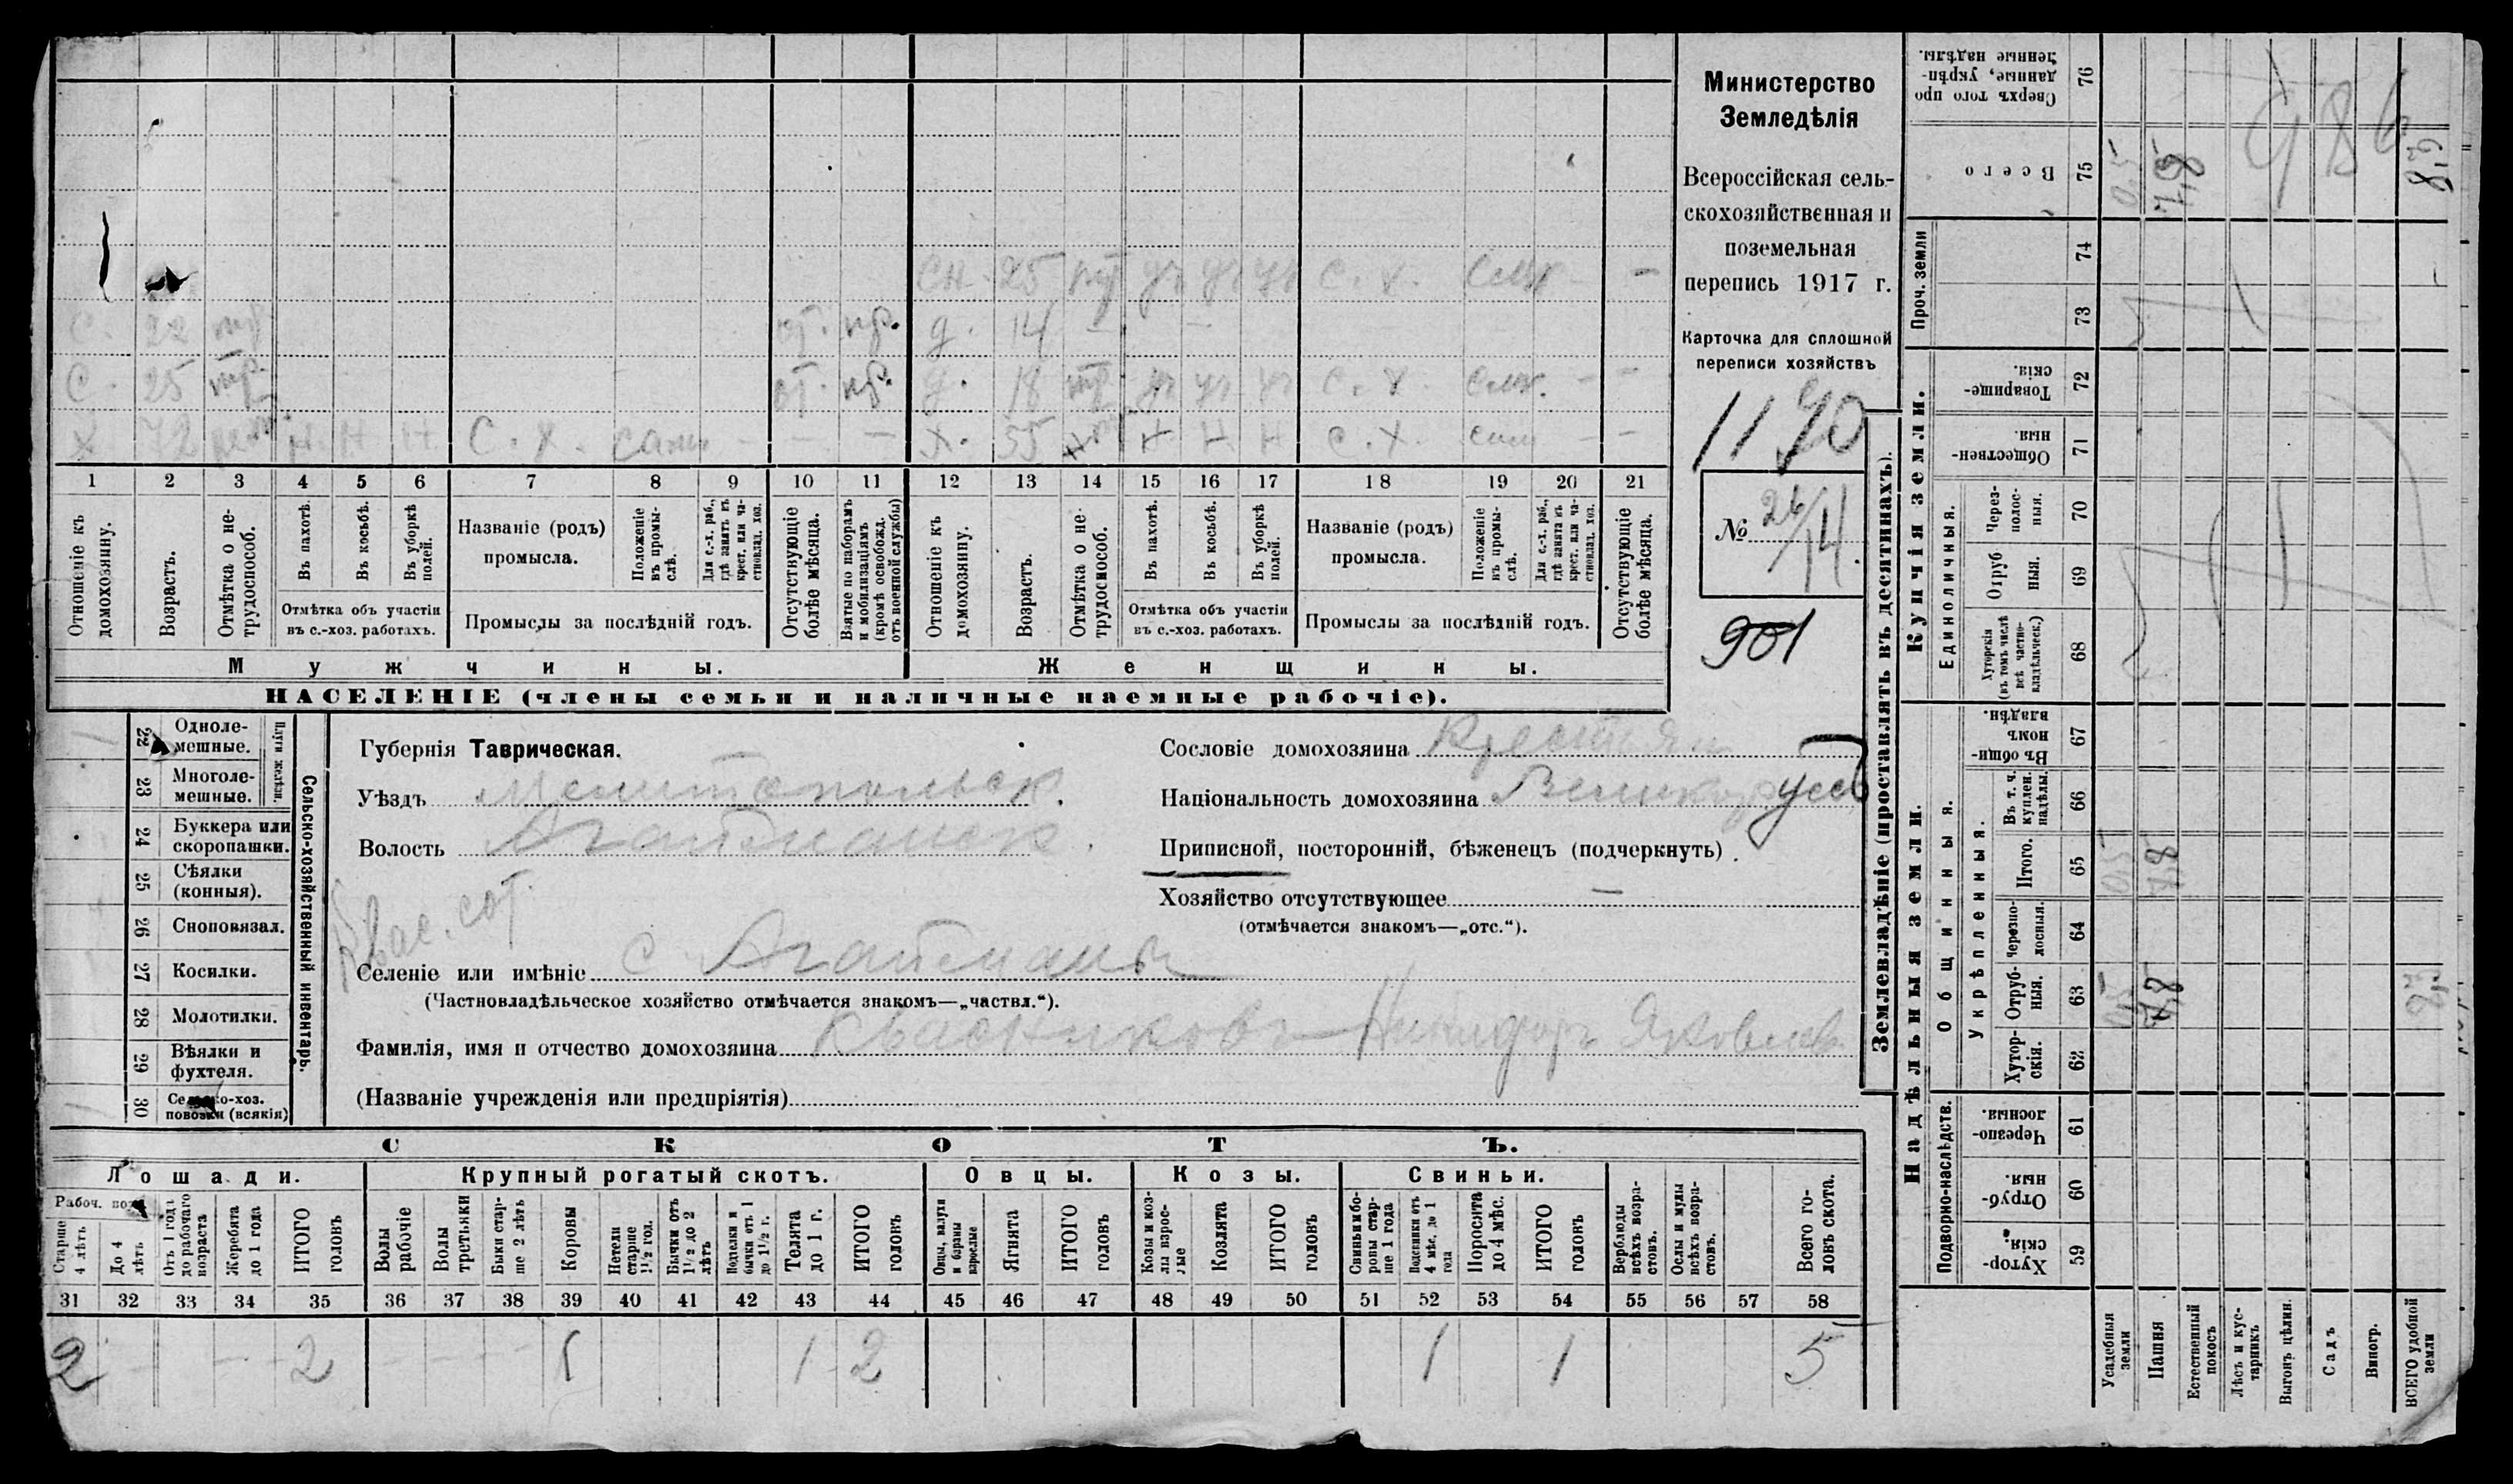 Министерство
Земледѣлія
Всероссійская сель-
скохозяйственная и
поземельная
перепись 1917 г.
Карточка для сплошной
переписи хозяйствъ
1190
№ 26/14
901
СН. 25 уч уч уч С. Х.
С. 22 от. пр. д. 14 — —
С. 25 от. пр. д. 18 уч уч уч С. Х. — —
Х 72 Н Н Н С. Х. сам — — — Х. 55 Н Н Н С. Х. сам — —
1 2 3 4 5 6 7 8 9 10 11 12 13 14 15 16 17 18 19 20 21
Отношеніе къ домохозяину.
Возрастъ.
Отмѣтка о не-трудоспособ.
Въ пахотѣ.
Въ косьбѣ.
Въ уборкѣ полей.
Отмѣтка объ участіи
въ с.-хоз. работахъ.
Названіе (родъ)
промысла.
Положеніе въ промы-слѣ.
Для с.-х. раб., гдѣ занятъ въ крест. или ча-стновлад. хоз.
Промыслы за послѣдній годъ.
Отсутствующіе болѣе мѣсяца.
Взятые по наборамъ и мобилизаціямъ (кромѣ освобожд. отъ военной службы)
Отношеніе къ домохозяину.
Возрастъ.
Отмѣтка о не-трудоспособ.
Въ пахотѣ.
Въ косьбѣ.
Въ уборкѣ полей.
Отмѣтка объ участіи
въ с.-хоз. работахъ.
Названіе (родъ)
промысла.
Положеніе въ промы-слѣ.
Для с.-х. раб., гдѣ занята въ крест. или ча-стновлад. хоз.
Промыслы за послѣдній годъ.
Отсутствующіе болѣе мѣсяца.
Мужчины. Женщины.
НАСЕЛЕНІЕ (члены семьи и наличные наемные рабочіе).
Сельско-хозяйственный инвентарь.
Плуги желѣзн.
22 Одноле-мешные.
23 Многоле-мешные.
24 Буккера или скоропашки.
25 Сѣялки (конныя).
26 Сноповязал.
27 Косилки.
28 Молотилки.
29 Вѣялки и фухтеля.
30 Сельско-хоз. повозки (всякія)
Губернія Таврическая.
Уѣздъ Мелитопольск.
Волость Агайманск.
Сословіе домохозяина Крестьян
Національность домохозяина Великорусс
Приписной, посторонній, бѣженецъ (подчеркнуть).
Хозяйство отсутствующее —
(отмѣчается знакомъ—„отс.“).
Селеніе или имѣніе с. Агайманы
(Частновладѣльческое хозяйство отмѣчается знакомъ—„частвл.“).
Фамилія, имя и отчество домохозяина Квасниковъ Никифоръ Яковлев.
(Названіе учрежденія или предпріятія)
СКОТЪ.
Лошади. Крупный рогатый скотъ. Овцы. Козы. Свиньи.
Старше 4 лѣтъ
До 4 лѣтъ
Отъ 1 года до рабочаго возраста
Жеребята до 1 года
ИТОГО головъ
Волы рабочіе
Волы третьяки
Быки стар-ше 2 лѣтъ
Коровы
Нетели старше 1½ год.
Бычки отъ 1½ до 2 лѣтъ
Подтелки и бычки отъ 1 до 1½ г.
Телята до 1 г.
ИТОГО головъ
Овцы, валухи и бараны взрослые
Ягнята
ИТОГО головъ
Козы и коз-лы взрос-лые
Козлята
ИТОГО головъ
Свиньи и бо-ровы стар-ше 1 года
Подсвинки отъ 4 мѣс. до 1 года
Поросята до 4 мѣс.
ИТОГО головъ
Верблюды всѣхъ возра-стовъ.
Ослы и мулы всѣхъ возра-стовъ.
Всего го-ловъ скота.
31 32 33 34 35 36 37 38 39 40 41 42 43 44 45 46 47 48 49 50 51 52 53 54 55 56 57 58
2 — — — 2 — — — 1 1 2 1 1 5
Землевладѣніе (проставлять въ десятинахъ).
Надѣльныя земли. Купчія земли. Проч. земли
Подворно-наслѣдств.
Общинныя.
Укрѣпленныя.
Единоличныя.
59 Хутор-скія.
60 Отруб-ныя.
61 Черезпо-лосныя.
62 Хутор-скія.
63 Отруб-ныя.
64 Черезпо-лосныя.
65 Итого.
66 Въ т. ч. куплен. надѣлы.
67 Въ общин-номъ владѣн.
68 Хуторскія (въ томъ числѣ всѣ частно-владѣльческ.)
69 Отруб ныя.
70 Через-полос-ныя.
71 Обществен-ныя.
72 Товарище-скія.
73
74
75 Всего
76 Сверхъ того про данные, укрѣп-ленные надѣлы.
Усадебныя земли 0,5 0,5 0,5
Пашня 7,8 7,8 7,8
Естественный покосъ
Лѣсъ и кус-тарникъ
Выгонъ цѣлин.
Садъ
Виногр.
ВСЕГО удобной земли 8,3 8,3
986